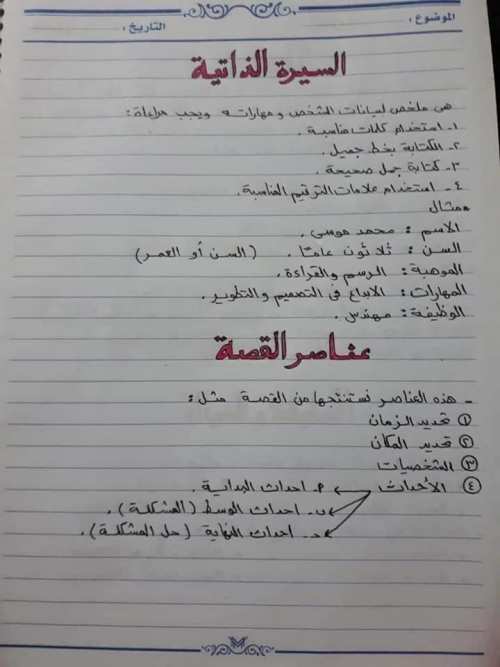 الموضوع : التاريخ :
السيرة الذاتية
هى ملخص لبيانات الشخص ومهاراته ويجب مراعاة :
١- استخدام كلمات مناسبة .
٢- الكتابة بخط جميل .
٣- كتابة جمل صحيحة .
٤- استخدام علامات الترقيم المناسبة .
مثال
الاسم : محمد موسى .
السن : ثلاثون عامًا . (السن أو العمر)
الموهبة : الرسم والقراءة .
المهارات : الابداع فى التصميم والتطوير .
الوظيفة : مهندس .
عناصر القصة
- هذه العناصر نستنتجها من القصة مثل :
① تحديد الزمان
② تحديد المكان
③ الشخصيات
④ الأحداث أ- احداث البداية .
ب- احداث الوسط (المشكلة) .
ج- احداث النهاية (حل المشكلة) .